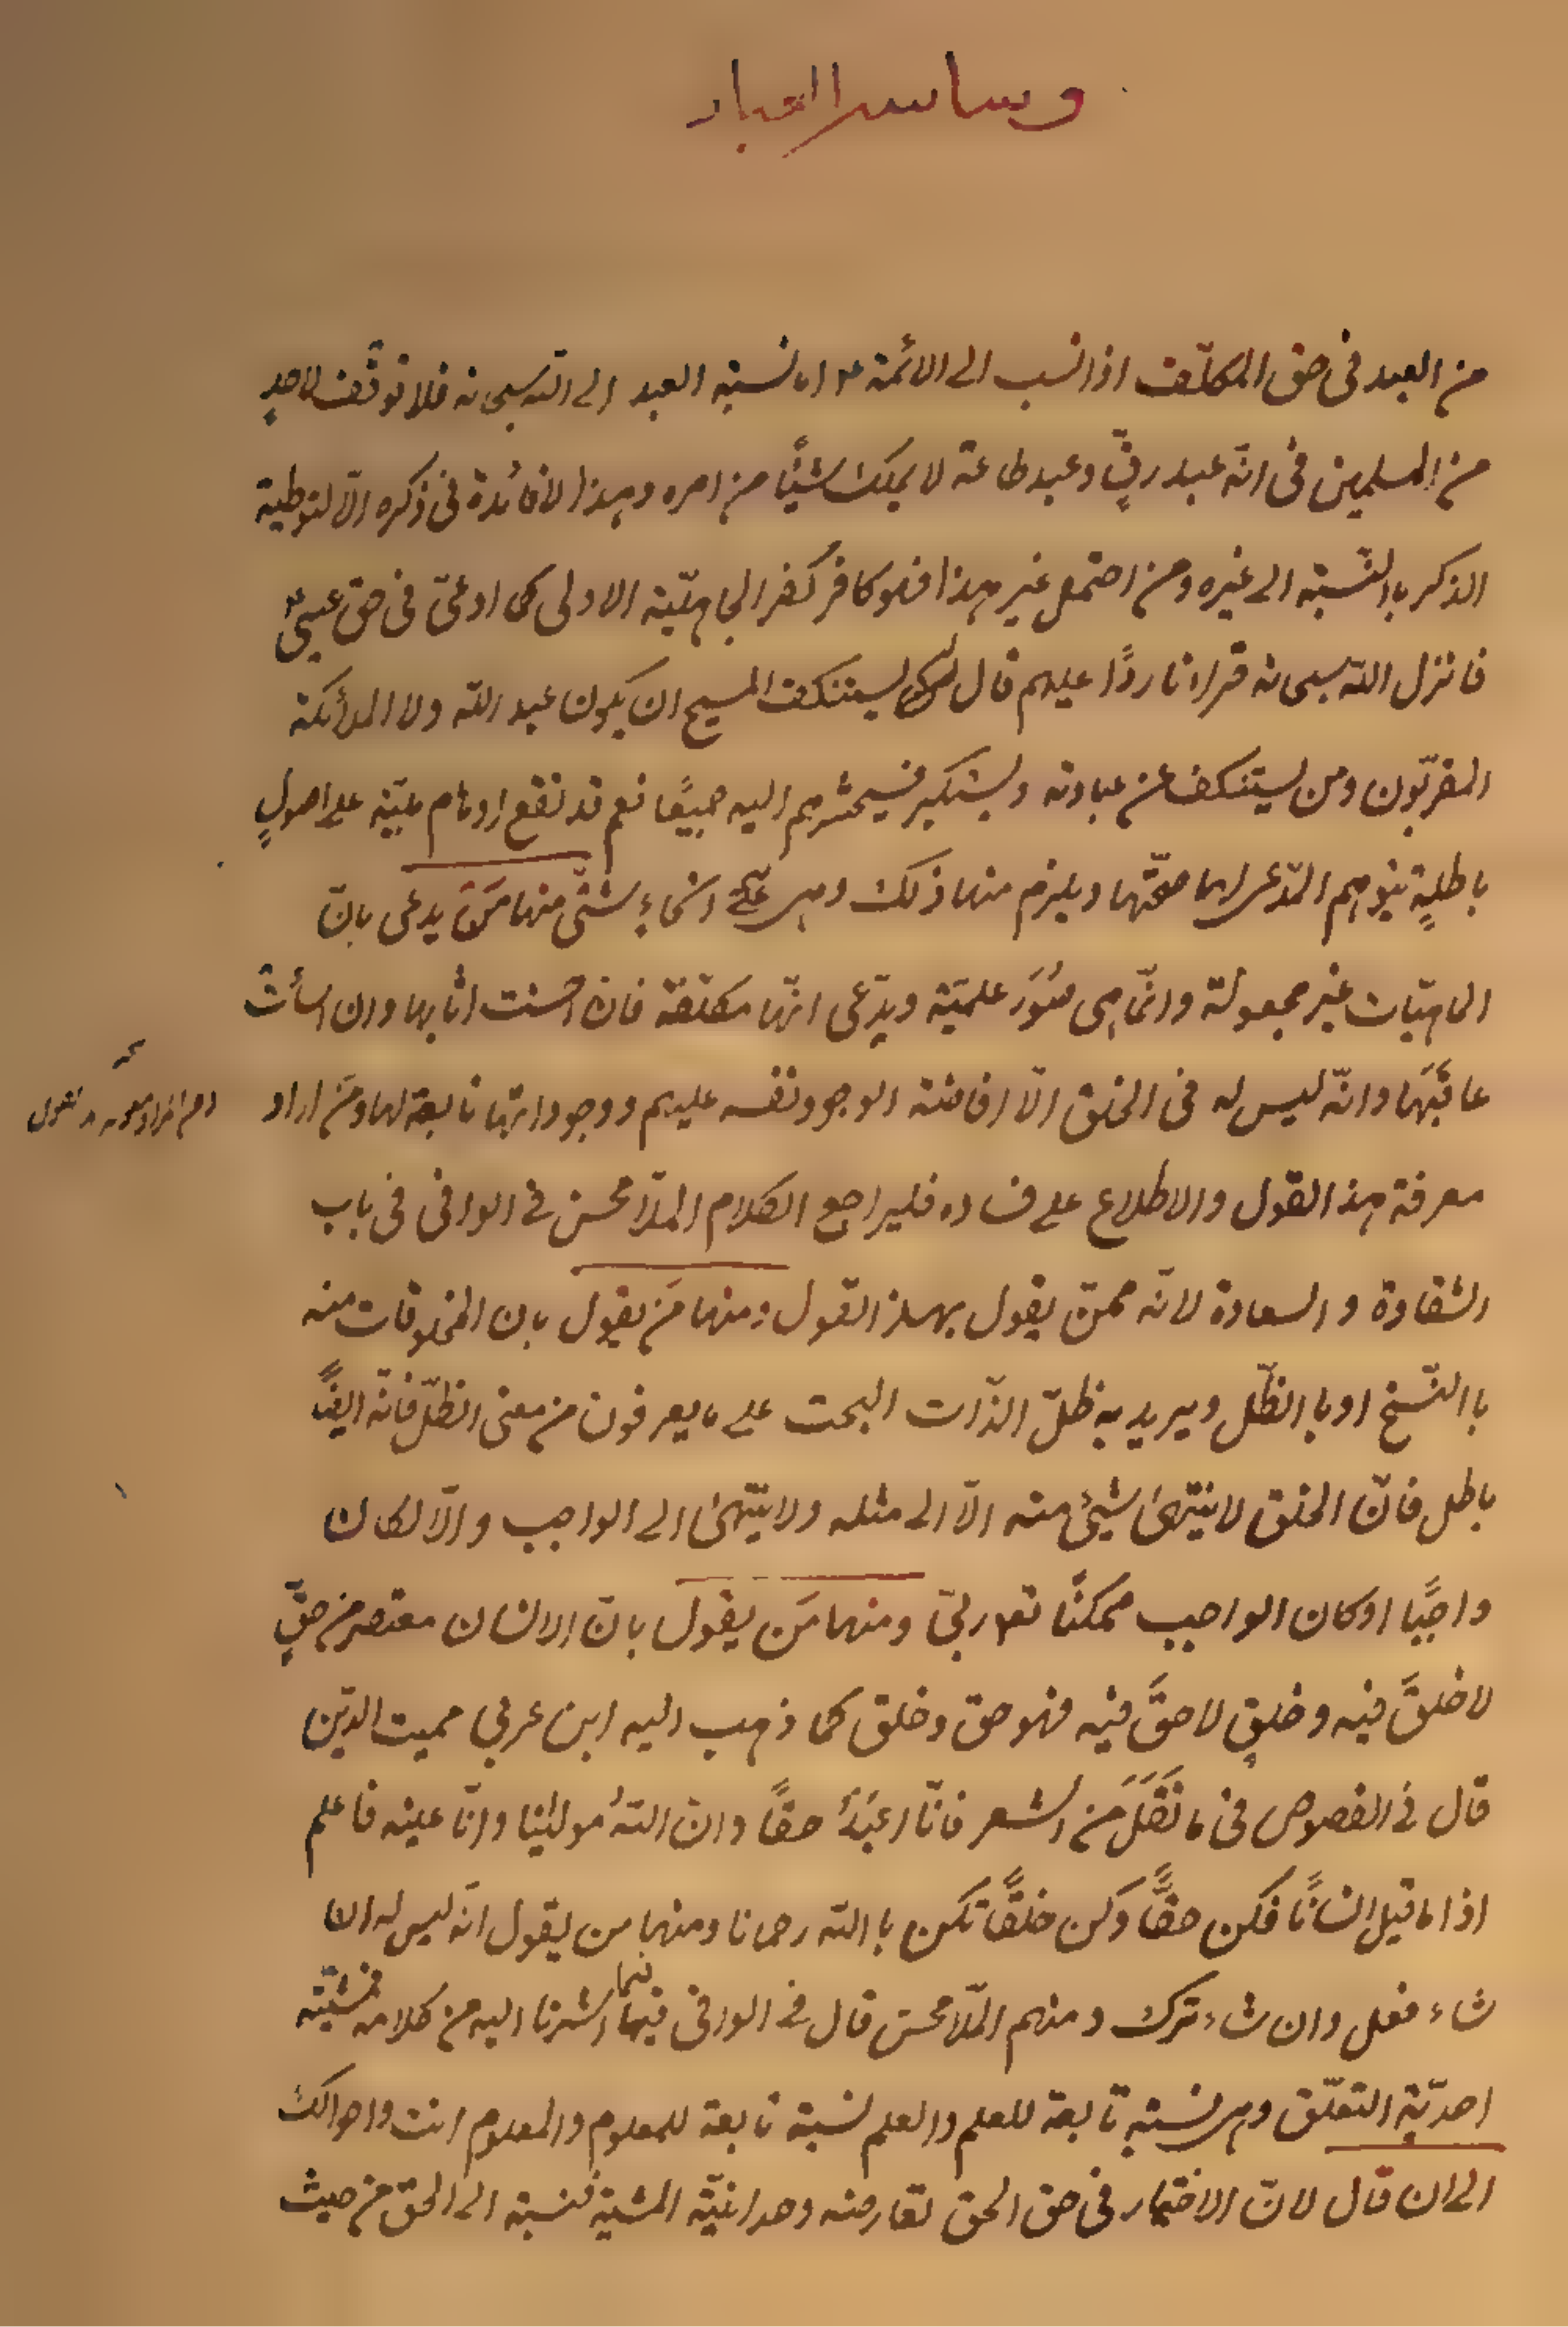 وساير العباد
من العبد فى حق المكلّف اذا نسب الى الائمة ع اما نسبة العبد الى اللّه سبحانه فلا توقّف لاحدٍ
من المسلمين فى انّه عبد رقٍّ وعبد طاعة لا يملك شيئًا من امره وهذا لا فائدة فى ذكره الّا لتوطية
الذكر باالنّسبة الى غيره ومن احتمل غير هذا فهو كافر كفر الجاهليّة الاولى كما ادعىّ فى حق عيسى ع
فانزل اللّه سبحانه قراٰنا ردًا عليهم قال لن يستنكف المسيح ان يكون عبد اللّه ولا الملٰئكة
المقربّون ومن يستنكف عن عبادته ويستكبر فسيحشرهم اليه جميعًا نعم قد تقع اوهام مبنيّة على اصولٍ
باطلةٍ يتوهم المدّعى لها صحّتها ويلزم منها ذلك وهى على انحاءٍ شتّى منها مَنْ يدعى بانّ
الماهيّات غير مجعولة وانّما هى صُوَر علميّة ويدّعى انّها مكلّفة فان احسنت اثابها وان اسأت
عاقبَها وانّه ليس له فى الخلق الّا افاضة الوجود نفسه عليهم ووجوداتها تابعة لها ومَن اراد
معرفة هذا القول والاطلاع على فساده فليراجع الكلام الملّا محسن فى الوافى فى باب
الشقاوة و السعادة لانّه ممّن يقول بهذا القول ومنها مَن يقول بان المخلوقات منه
باالنّسخ او باالظّل ويريد به ظلّ الذّات البحت على ما يعرفون من معنى الظلّ فانّه ايضًا
باطل فانّ الخلق لا ينتهىٰ شيئ منه الّا الى مثله ولا ينتهىٰ الى الواجب والّا لكان
واجبًا او كان الواجب ممكنًا تعالى ربىّ ومنها مَن يقول بانّ الانسان معتصر من حقٍّ
لا خلقَّ فيه وخلقٍ لا حقَّ فيه فهو حق وخلق كما ذهب اليه ابن عربي مميت الدّين
قال فى الفصوص فى ما نَقَلَ مَن الشعر فانّا اعبدُ حقًا وان اللّهُ مولٰينا وانّا عينه فاعلم
اذا ما قيل انسانًا فكن حقًّا وَكن خلقًّا تكن باالله رحمانا ومنها من يقول انّه ليس له ان
شاء فعل وان شاء ترك ومنهم الملّا محسن قال فى الوافى فيما اشرنا اليه من كلامه فمشيّته
احديّة التعلّق وهى نسبة تابعة للعلم والعلم نسبة تابعة للمعلوم والمعلوم انت واحوالك
الى ان قال لانّ الاختيار فى حق الحق تعارضه وحدانيّة المشية فنسبة الى الحق من حيث